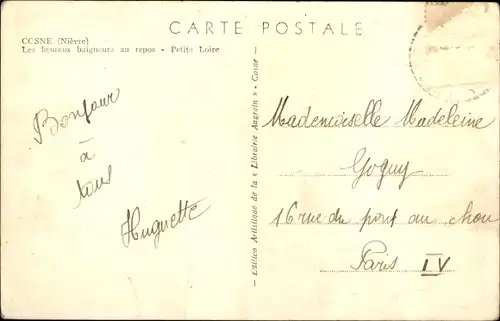 CARTE POSTALE
COSNE (Nièvre)
Les heureux baigneurs au repos - Petite Loire
Bonjour
à
tous
Huguette
— Edition Artistique de la « Librairie Augrain » - Cosne —
Mademoiselle Madeleine
Goguy
16 rue du pont au chou
Paris IV